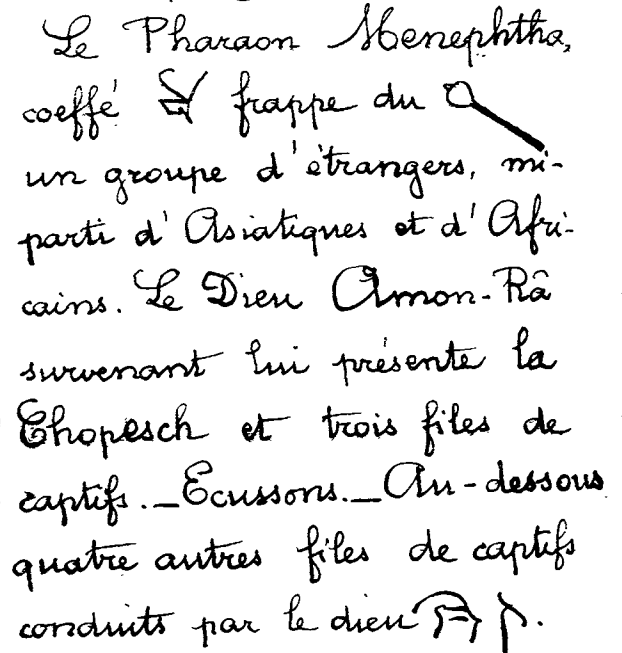 Le Pharaon Menephtha,
coeffé frappe du
un groupe d'étrangers, mi-
parti d'Asiatiques et d'Afri-
cains. Le Dieu Amon-Râ
survenant lui présente la
Chopesch et trois files de
captifs._Ecussons._Au-dessous
quatre autres files de captifs
conduits par le dieu .